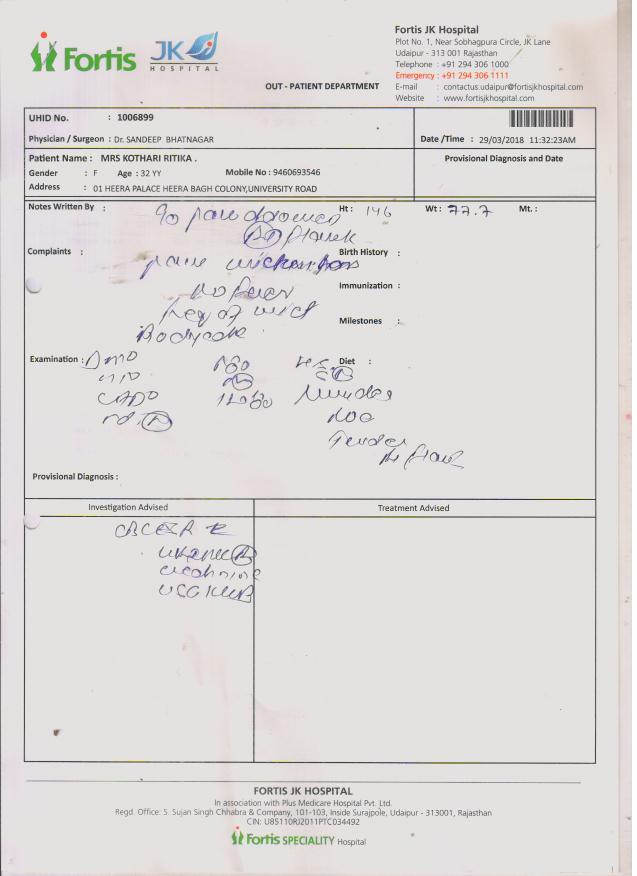 Fortis
JK
HOSPITAL
Fortis JK Hospital
Plot No. 1, Near Sobhagpura Circle, JK Lane
Udaipur - 313 001 Rajasthan
Telephone : +91 294 306 1000
Emergency : +91 294 306 1111
E-mail : contactus.udaipur@fortisjkhospital.com
Website : www.fortisjkhospital.com
OUT - PATIENT DEPARTMENT
UHID No. : 1006899
Physician / Surgeon : Dr. SANDEEP BHATNAGAR
Date /Time : 29/03/2018 11:32:23AM
Patient Name : MRS KOTHARI RITIKA .
Provisional Diagnosis and Date
Gender : F Age : 32 YY Mobile No : 9460693546
Address : 01 HEERA PALACE HEERA BAGH COLONY,UNIVERSITY ROAD
Notes Written By :
Ht : 146 Wt : 77.7 Mt. :
Complaints :
Birth History :
no fever
Immunization :
Milestones :
Examination :
Diet :
Tender
Provisional Diagnosis :
Investigation Advised
Treatment Advised
CBC ESR
creatinine
USG KUB
FORTIS JK HOSPITAL
In association with Plus Medicare Hospital Pvt. Ltd.
Regd. Office: S. Sujan Singh Chhabra & Company, 101-103, Inside Surajpole, Udaipur - 313001, Rajasthan
CIN: U85110RJ2011PTC034492
Fortis SPECIALITY Hospital